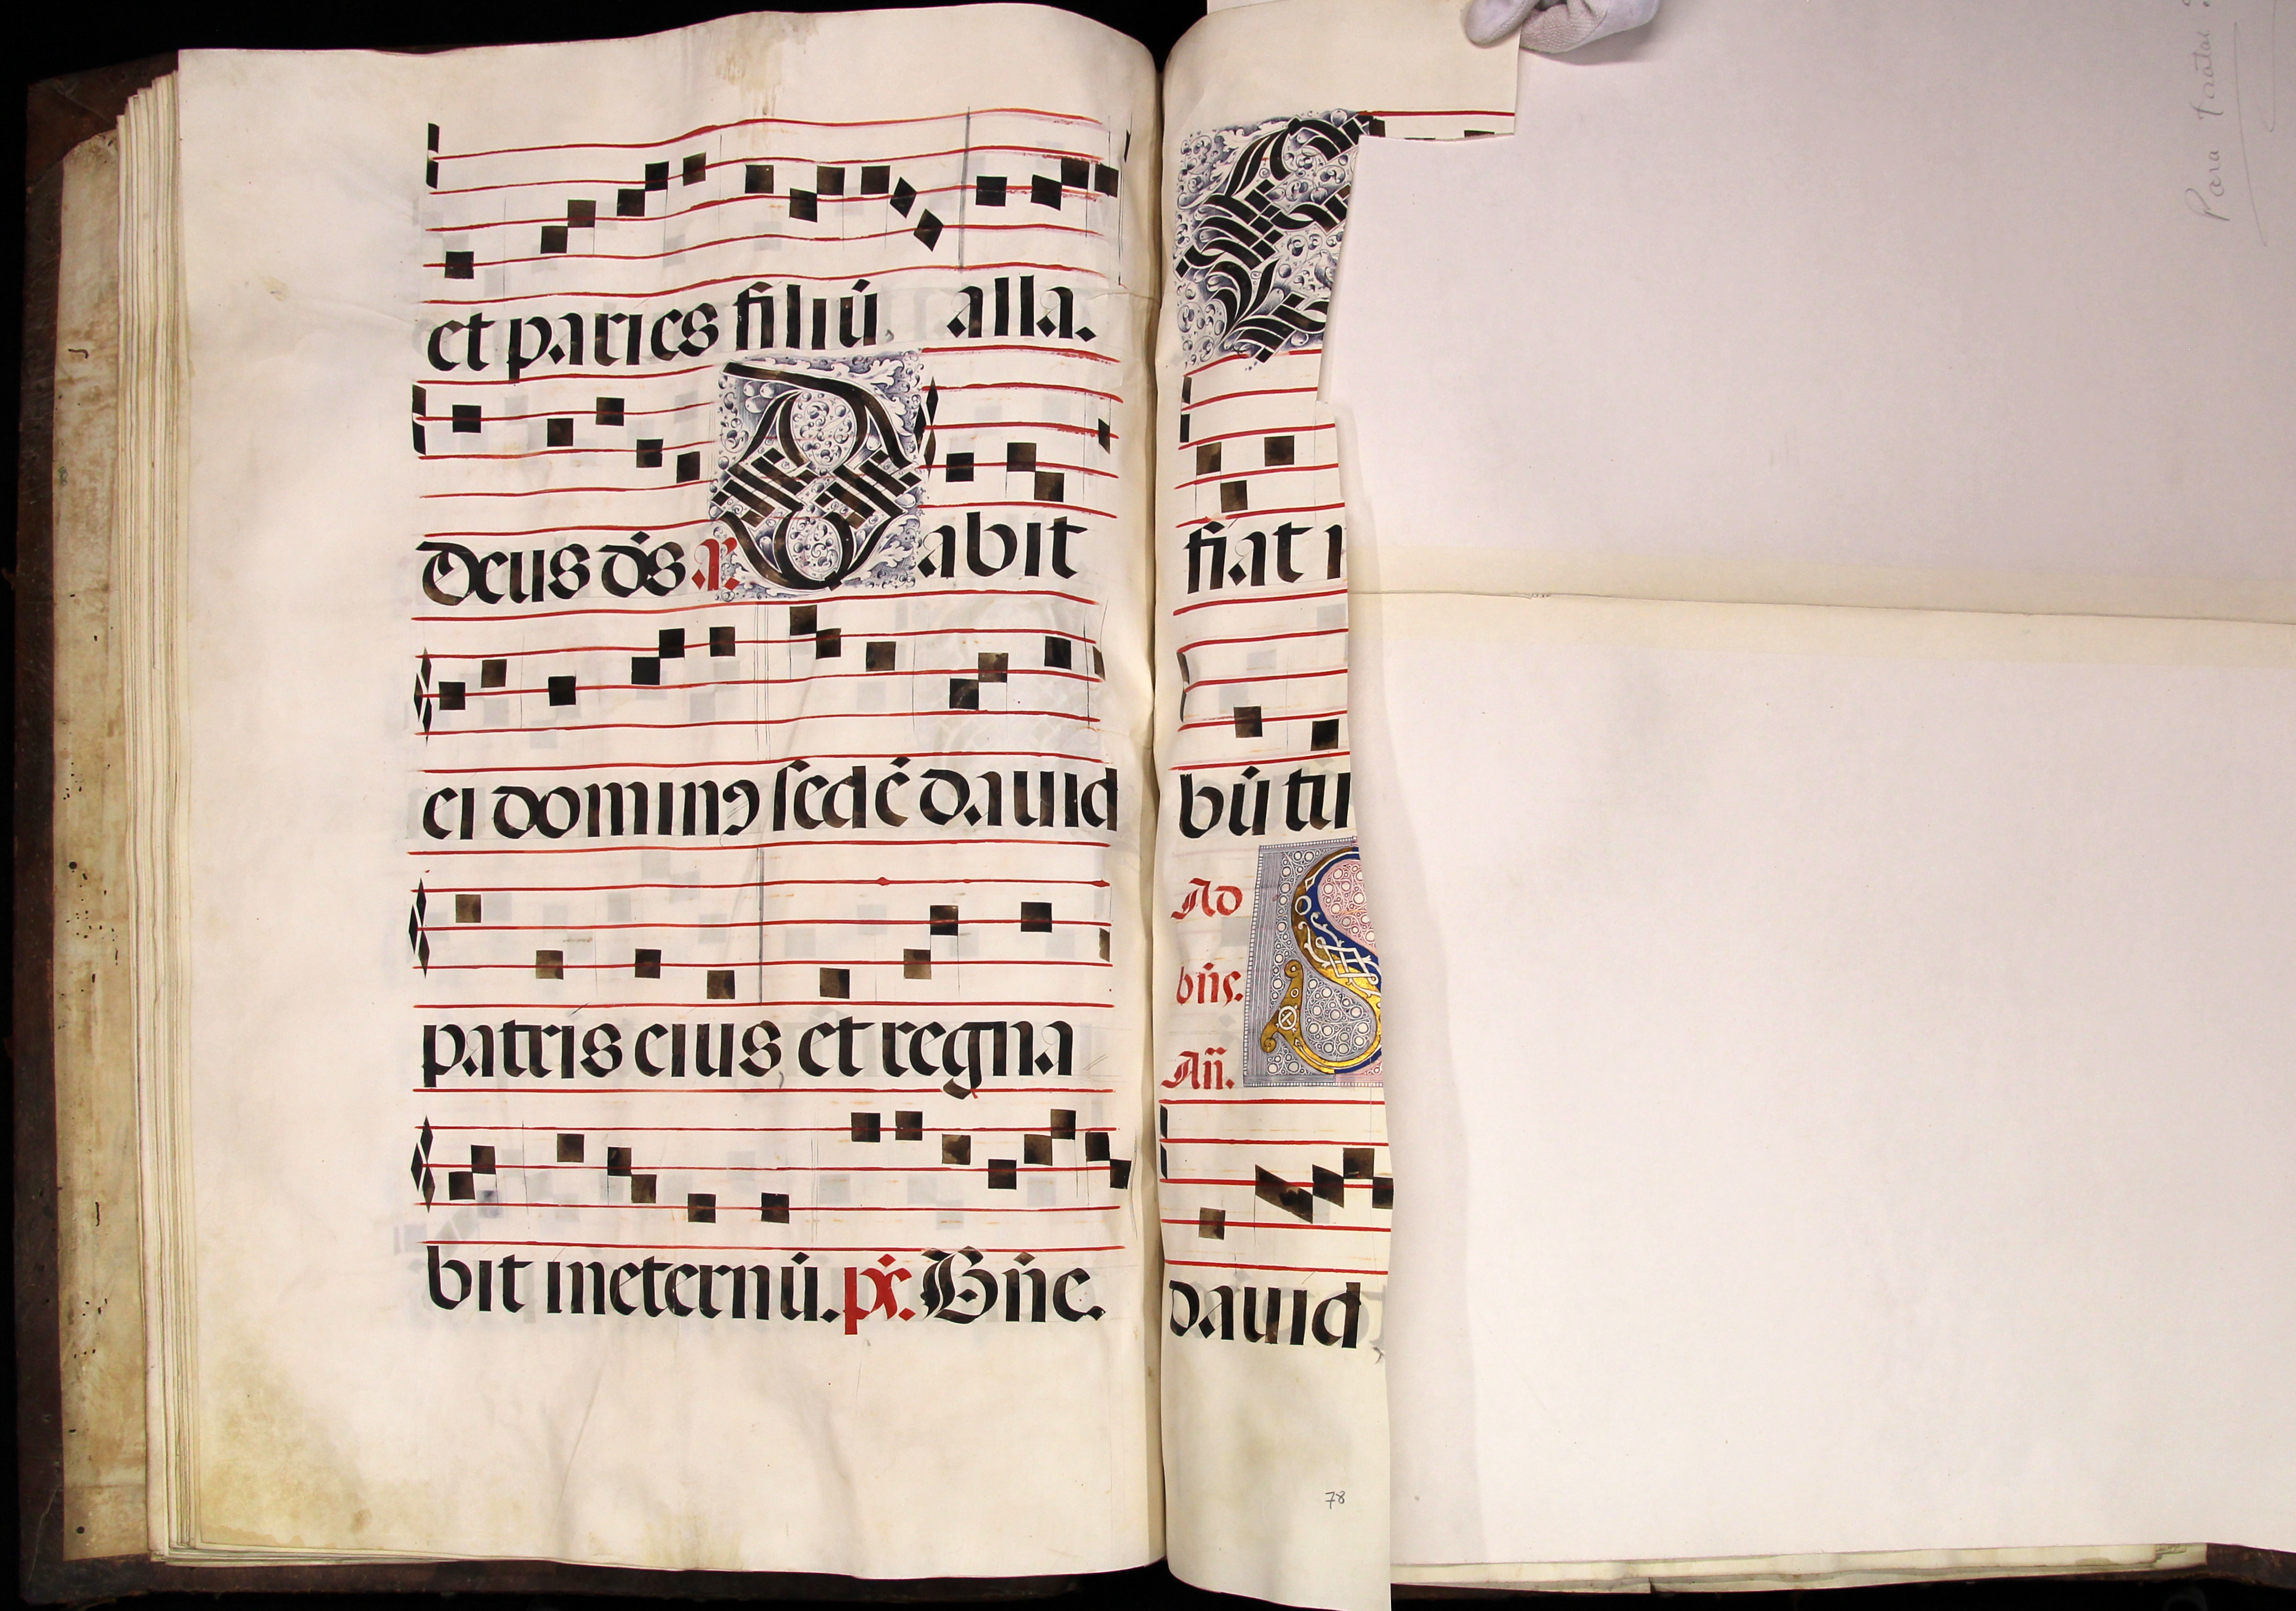 et paries filiū alla.
Deus ds̄ a. Dabit
ei dominꝰ sedē dauid
patris eius et regna
bit ineternū. ps̄. Bn̄e.
E
fiat
bū tu
Ad
bn̄s.
An̄. S
dauid
78
Para